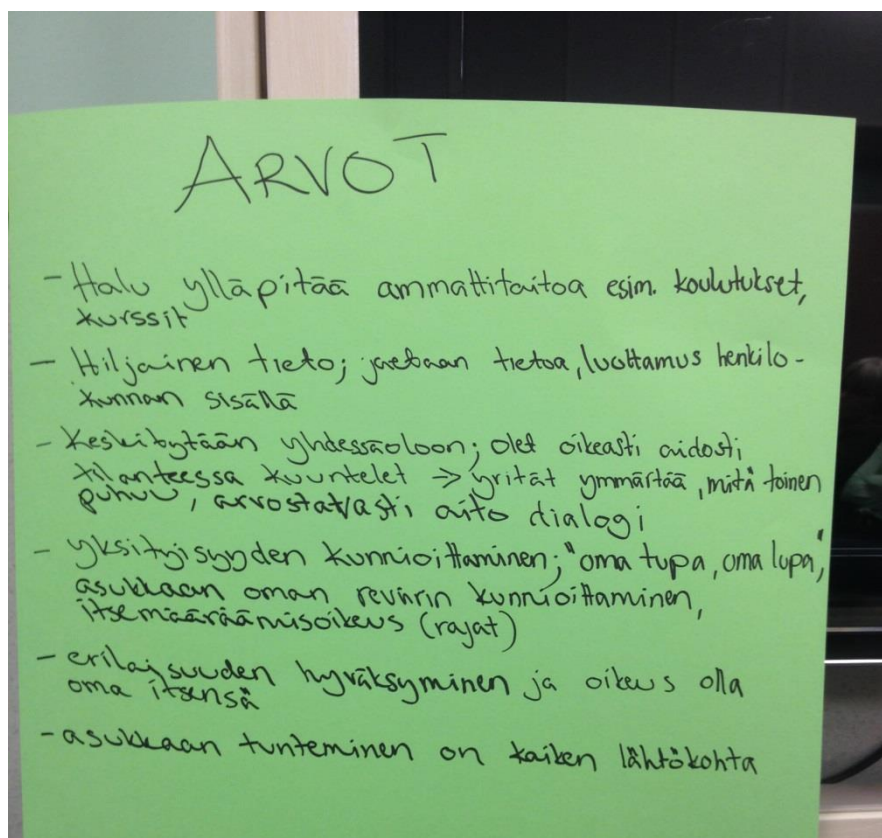 ARVOT
- Halu ylläpitää ammattitaitoa esim. koulutukset,
kurssit
- Hiljainen tieto; jaetaan tietoa, luottamus henkilö-
kunnan sisällä
- Keskitytään yhdessäoloon; olet oikeasti aidosti
tilanteessa kuuntelet => yrität ymmärtää, mitä toinen
puhuu, arvostat/asti aito dialogi
- yksityisyyden kunnioittaminen; "oma tupa, oma lupa",
asukkaan oman reviirin kunnioittaminen,
itsemääräämisoikeus (rajat)
- erilaisuuden hyväksyminen ja oikeus olla
oma itsensä
- asukkaan tunteminen on kaiken lähtökohta